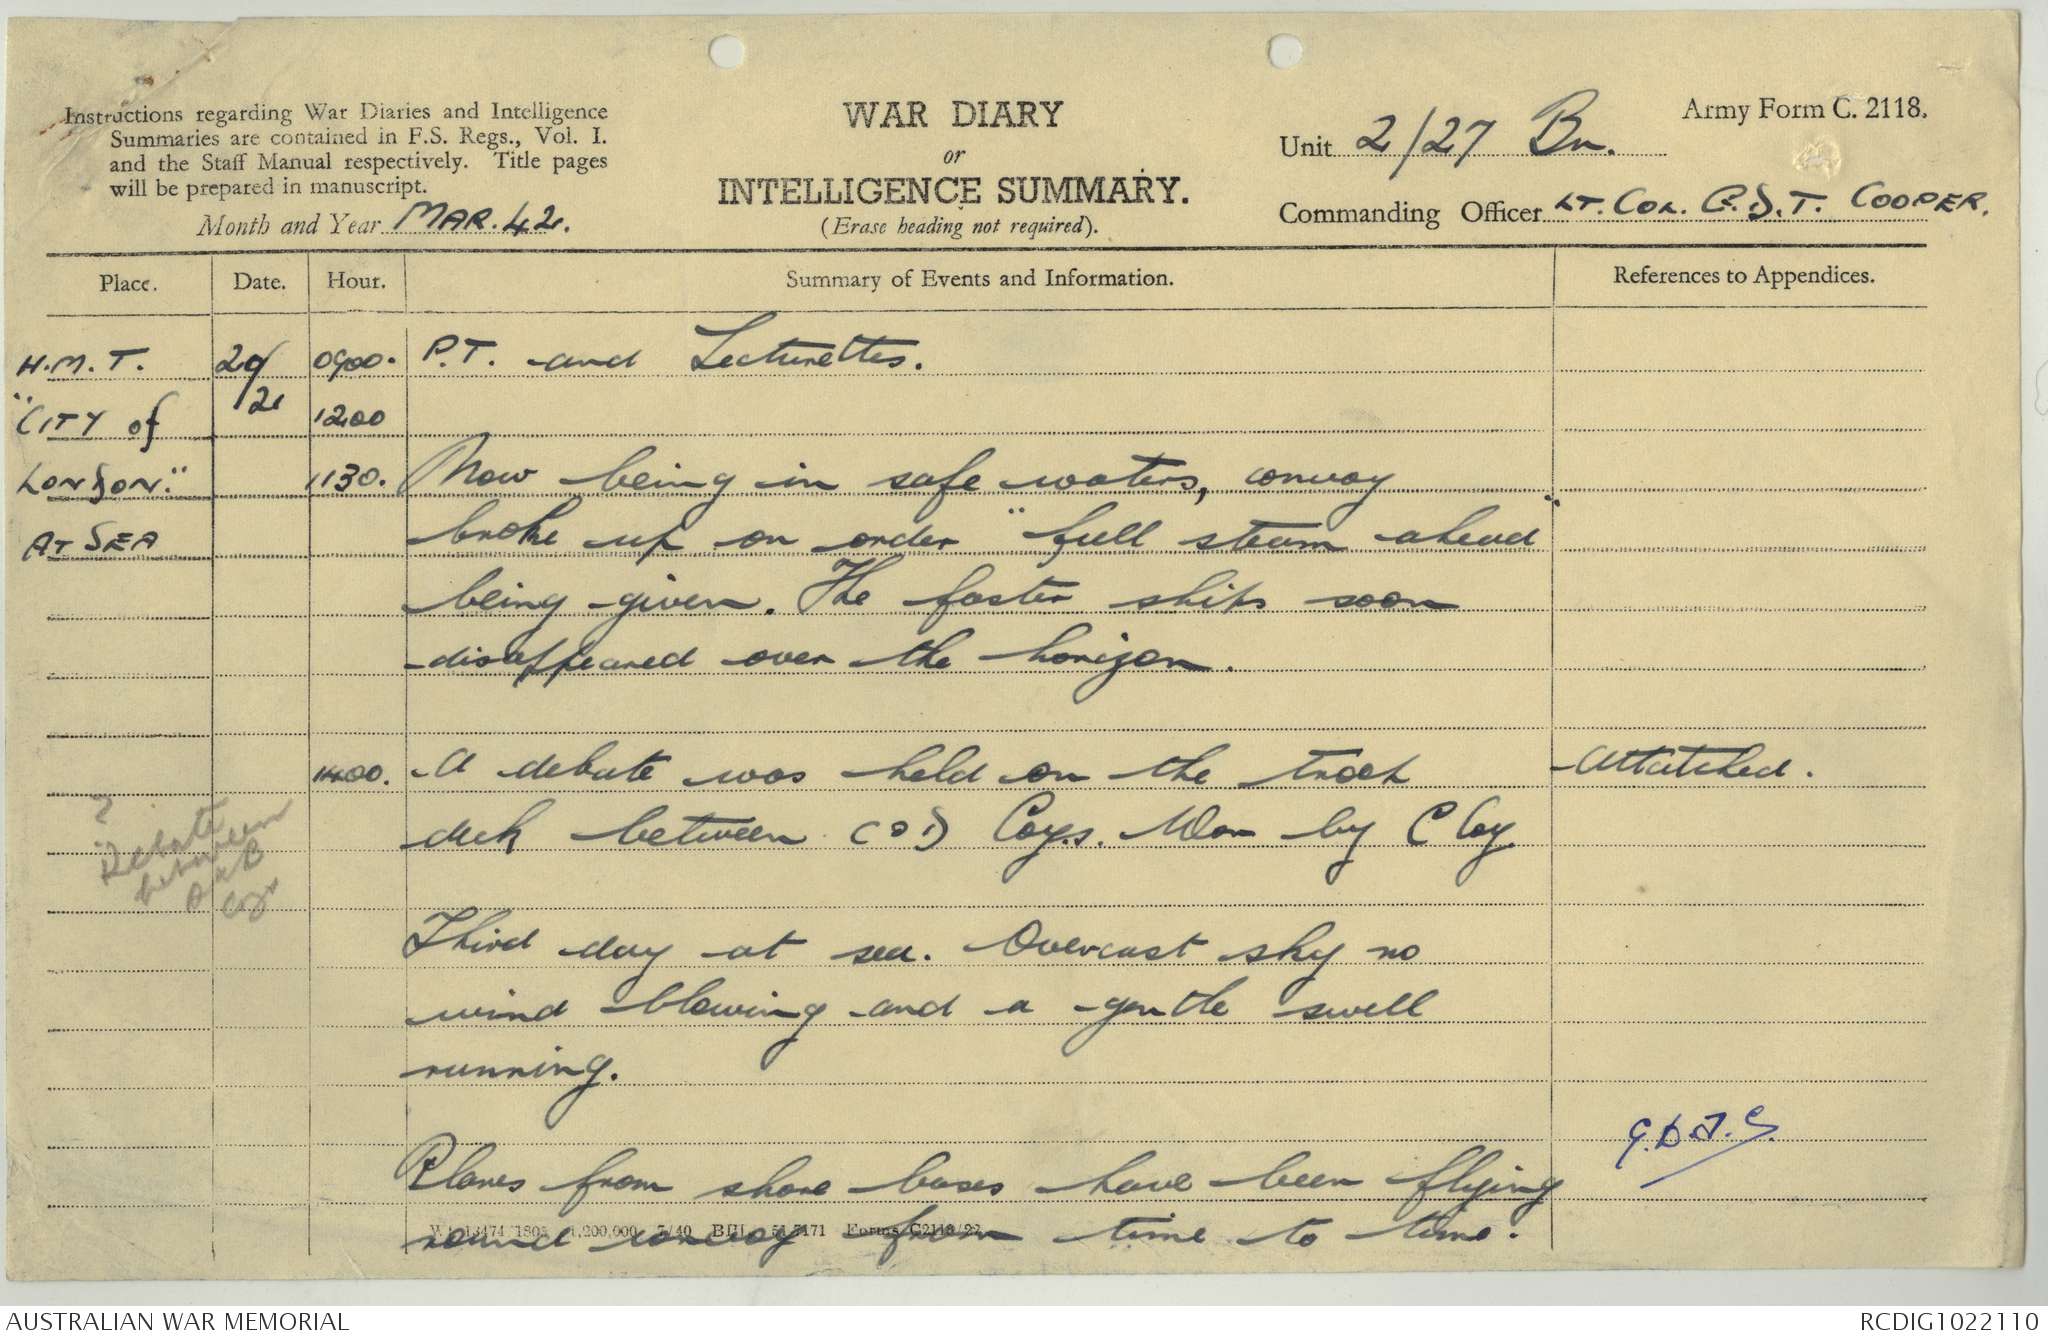 Instructions regarding War Diaries and Intelligence
Summaries are contained in F.S. Regs., Vol. I.
and the Staff Manual respectively. Title pages
will be prepared in manuscript.
Month and Year MAR. 42.
WAR DIARY
or
INTELLIGENCE SUMMARY.
(Erase heading not required).
Army Form C. 2118.
Unit 2/27 Bn.
Commanding Officer LT. COL. G.D.T. COOPER.
Place. Date. Hour. Summary of Events and Information. References to Appendices.
H.M.T. 20/21 0900. P.T. and Lecturettes.
"CITY of 1200
LONDON." 1130. Now being in safe waters, convoy
AT SEA broke up on order "full steam ahead"
being given. The faster ships soon
disappeared over the horizon.
1400. A debate was held on the troop Attatched.
deck between C & D Coys. Won by C Coy.
?
Debate
between
A & B
Coys
Third day at sea. Overcast sky no
wind blowing and a gentle swell
running.
G.D.T.C.
Planes from shore bases have been flying
round convoy from time to time.
13474 1805 1,200,000 7/40 51/5171 Forms C2118/22
AUSTRALIAN WAR MEMORIAL
RCDIG1022110